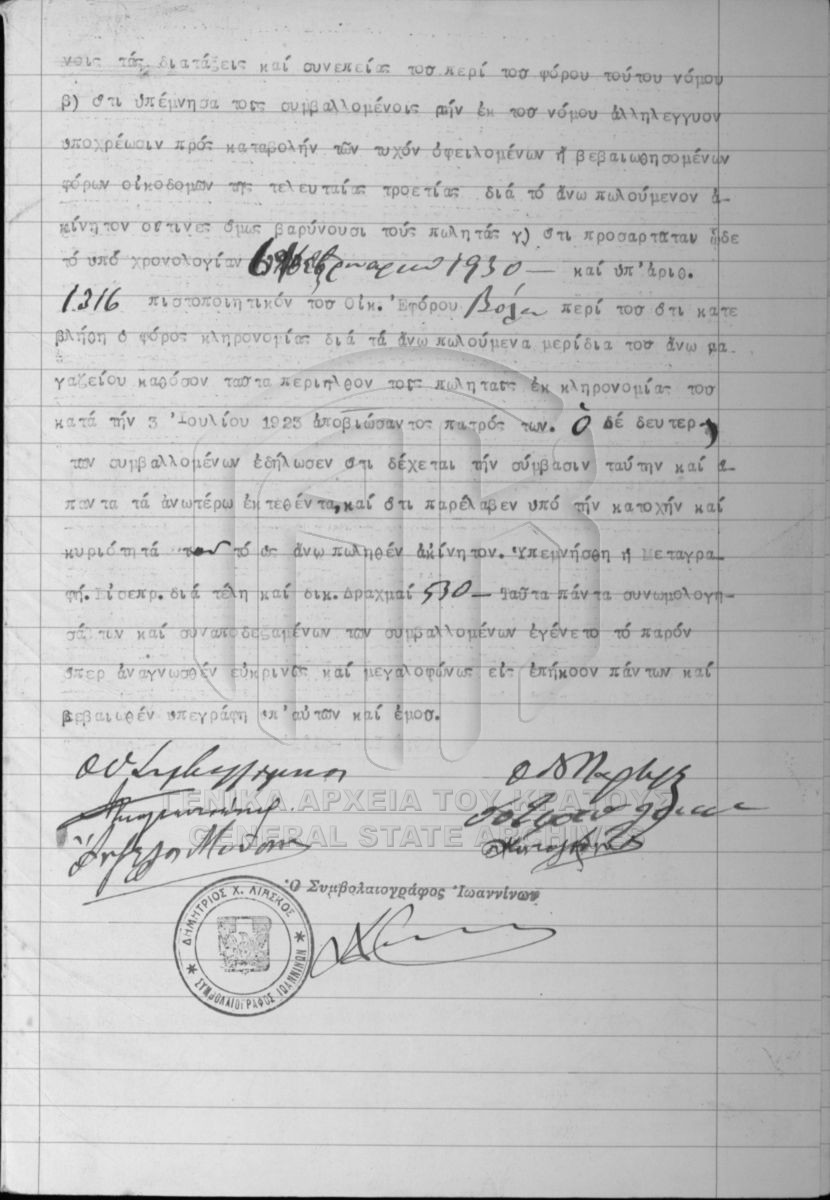 νοις τάς διατάξεις καί συνεπείας τοσ περί τοσ φόρου τούτου νόμου
β) στι υπέμνησα τοις συμβαλλομένοις τήν έκ τοσ νόμου άλληλεγγυον
υποχρέωσιν πρός καταβολήν τών τυχόν όφειλομένων ή βεβαιωθησομένων
φόρων οίκοδομών της τελευταίας τροετίας διά τό άνω πωλούμενον ά-
κίνητον οστινες σμως βαρύνουσι τούς πωλητάς γ) στι προσαρταται ώδε
τό υπό χρονολογίαν 1930 — καί υπ'άριθ.
1316 πιστοποιητικόν τοσ Οικ. Έφόρου περί τοσ στι κατε
βλήθη ο φόρος κληρονομίας διά τά άνω πωλούμενα μερίδια τοσ άνω μα
γαζείου καθόσον ταστα περιηλθον τοις πωληταις έκ κληρονομίας τοσ
κατά τήν 3 Ίουλίου 1923 άποβιώσαντος πατρός των. Ὁ δέ δευτερ
των συμβαλλομένων έδήλωσεν στι δέχεται τήν σύμβασιν ταύτην καί α-
παντα τά άνωτέρω έκτεθέντα, καί στι παρέλαβεν υπό τήν κατοχήν καί
κυριότητά του τό ς άνω πωληθέν άκίνητον. Υπεμνήσθη ή Μεταγρα-
φή. Είσεπρ. διά τέλη καί δικ. Δραχμαί 530 — Ταστα πάντα συνωμολογη-
σάντων καί συναποδεξαμένων των συμβαλλομένων έγένετο τό παρόν
σπερ άναγνωσθέν εύκρινώς καί μεγαλοφώνως είς έπήκοον πάντων καί
βεβαιωθέν υπεγράφη υπ'αύτων καί έμοσ.
ΓΕΝΙΚΑ ΑΡΧΕΙΑ ΤΟΥ ΚΡΑΤΟΥΣ
GENERAL STATE ARCHIVES
Ὁ Συμβολαιογράφος Ἰωαννίνων
ΔΗΜΗΤΡΙΟΣ Χ. ΛΙΑΣΚΟΣ
ΣΥΜΒΟΛΑΙΟΓΡΑΦΟΣ ΙΩΑΝΝΙΝΩΝ